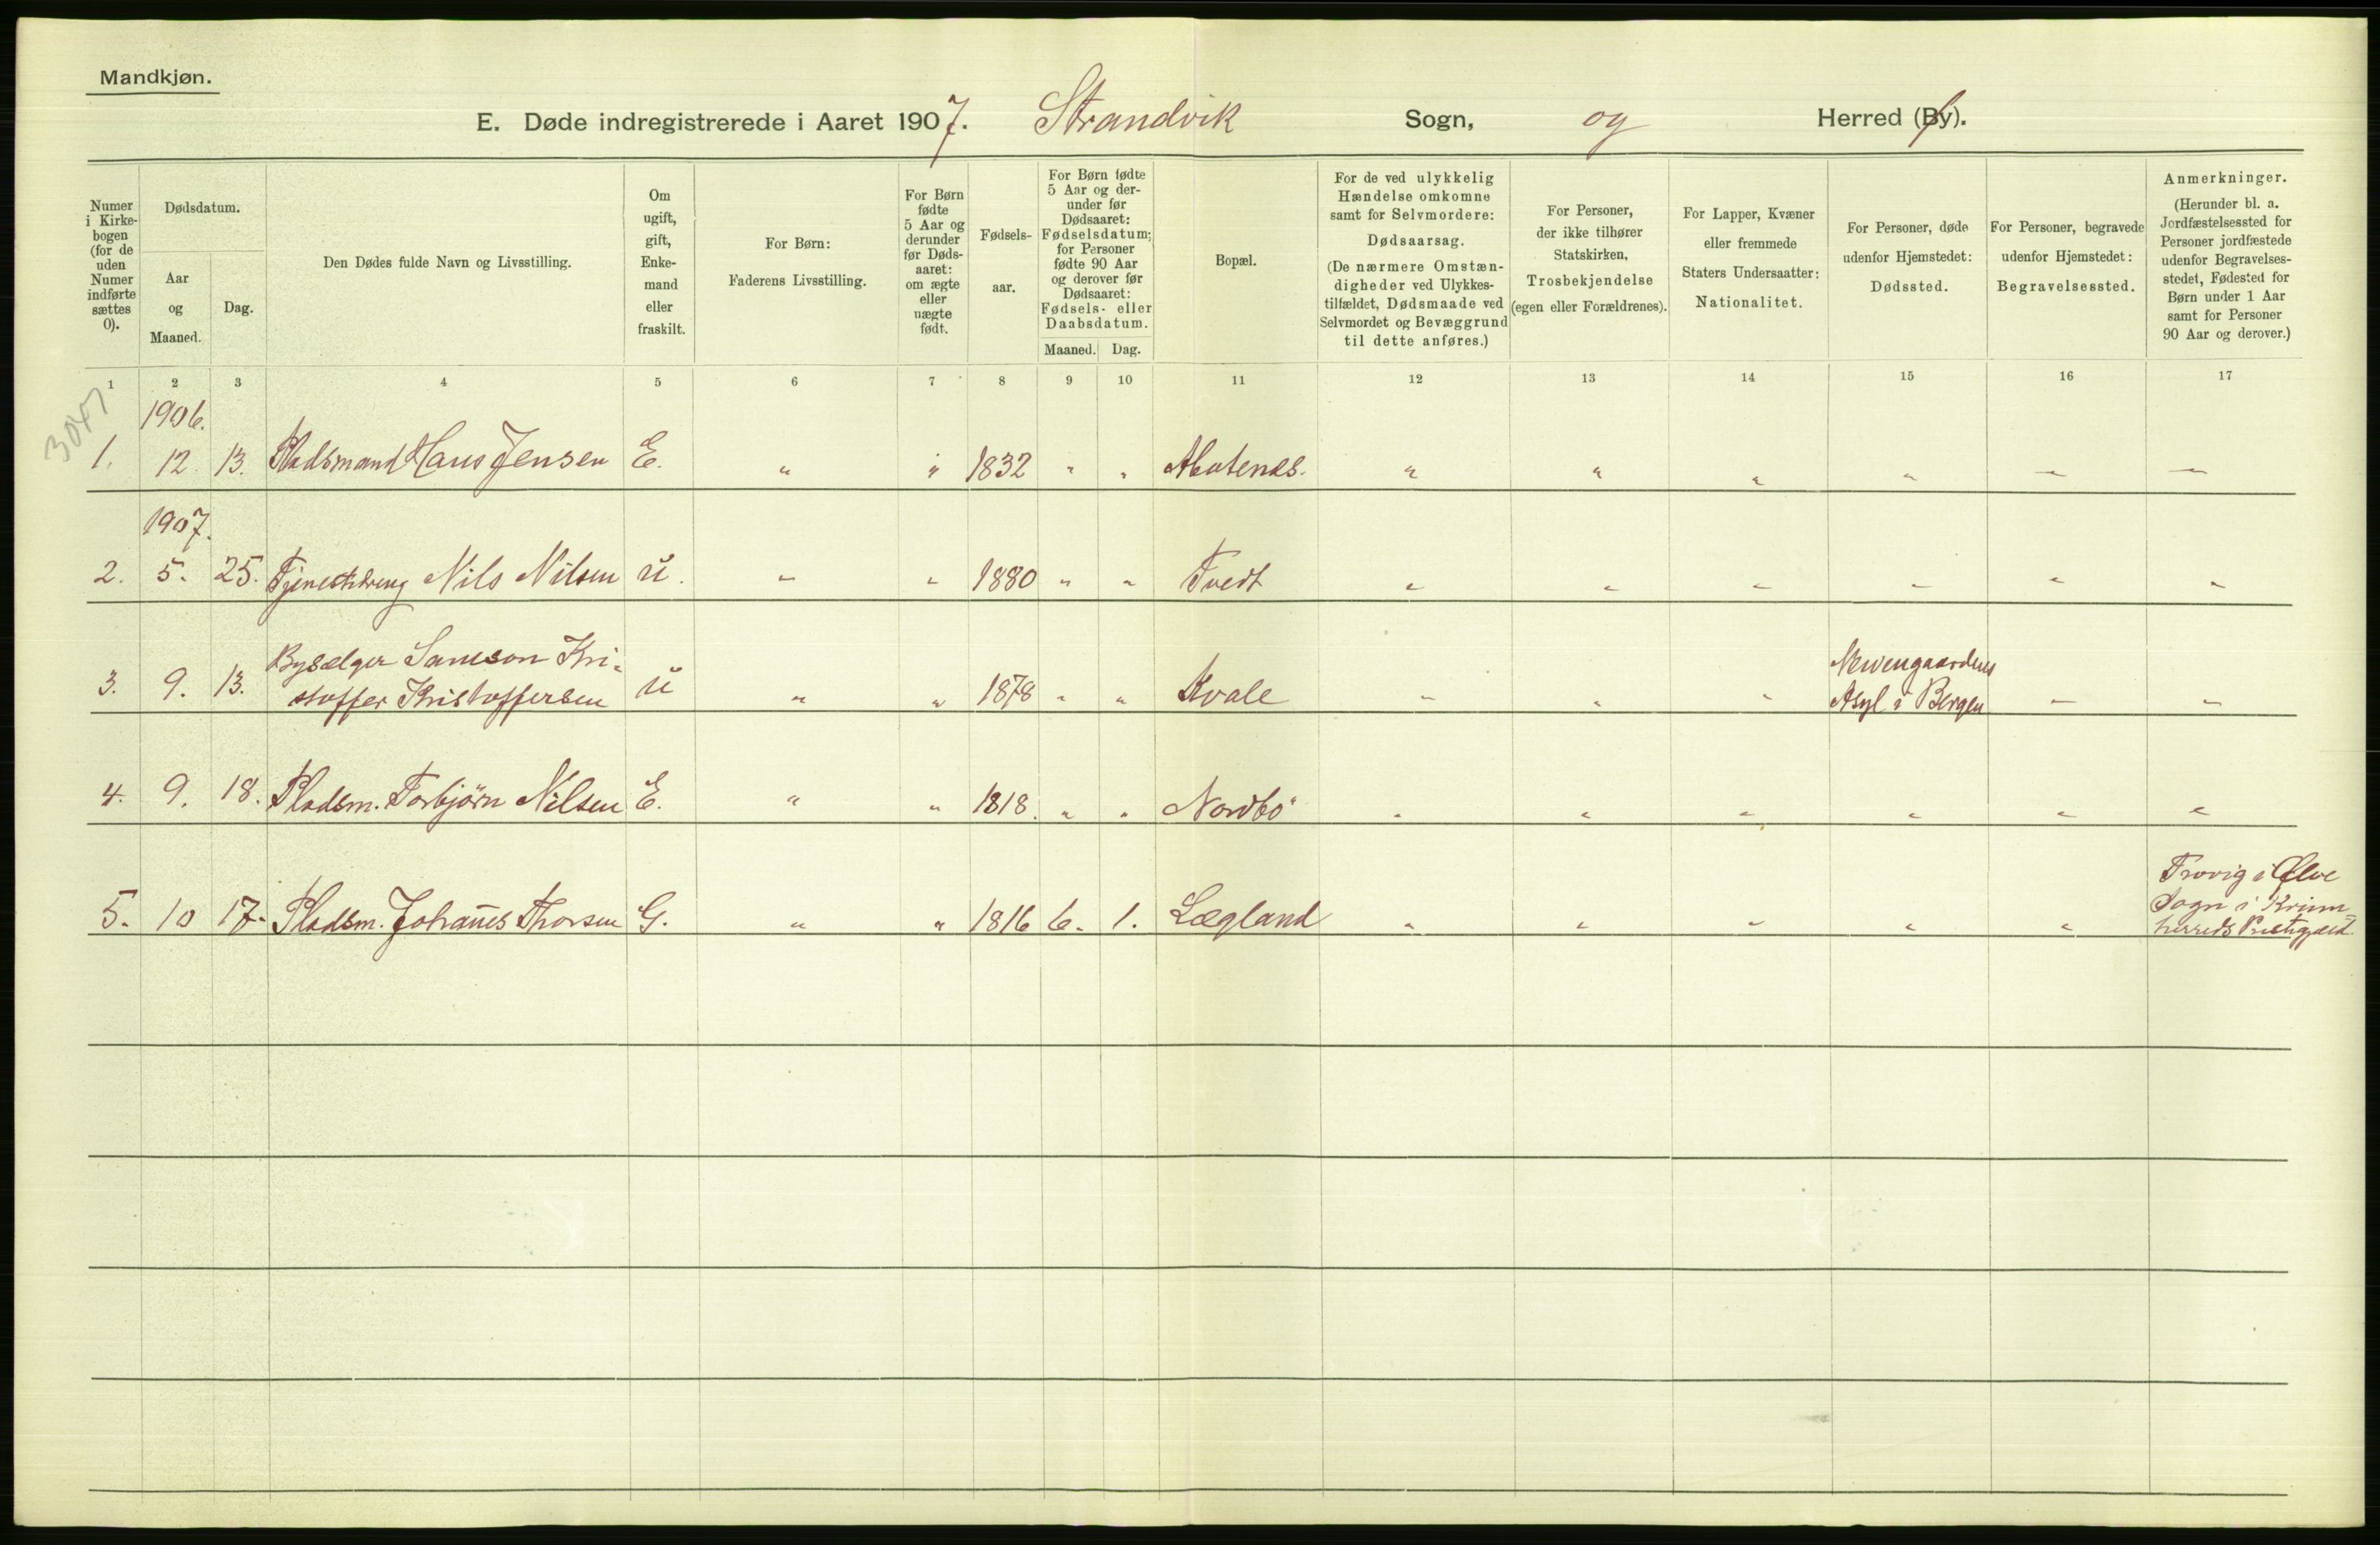 Mandkjøn.
E. Døde indregistrerede i Aaret 1907. Strandvik Sogn, og Herred (By).
Numer i Kirkebogen (for de uden Numer indførte sættes 0).
Dødsdatum.
Aar og Maaned.
Dag.
Den Dødes fulde Navn og Livsstilling.
Om ugift, gift, Enkemand eller fraskilt.
For Børn: Faderens Livsstilling.
For Børn fødte 5 Aar og derunder før Dødsaaret: om ægte eller uægte født.
Fødselsaar.
For Børn fødte 5 Aar og derunder før Dødsaaret: Fødselsdatum; for Personer fødte 90 Aar og derover før Dødsaaret: Fødsels- eller Daabsdatum.
Maaned. Dag.
Bopæl.
For de ved ulykkelig Hændelse omkomne samt for Selvmordere: Dødsaarsag. (De nærmere Omstændigheder ved Ulykkestilfældet, Dødsmaade ved Selvmordet og Bevæggrund til dette anføres.)
For Personer, der ikke tilhører Statskirken, Trosbekjendelse (egen eller Forældrenes).
For Lapper, Kvæner eller fremmede Staters Undersaatter: Nationalitet.
For Personer, døde udenfor Hjemstedet: Dødssted.
For Personer, begravede udenfor Hjemstedet: Begravelsessted.
Anmerkninger. (Herunder bl. a. Jordfæstelsessted for Personer jordfæstede udenfor Begravelsesstedet, Fødested for Børn under 1 Aar samt for Personer 90 Aar og derover.)
1 2 3 4 5 6 7 8 9 10 11 12 13 14 15 16 17
3047
1906.
1. 12. 13. Pladsmand Hans Jensen E. " " 1832 " " " " " " — —
1907.
2. 5. 25. Tjenestedreng Nils Nilsen u. " " 1880 " " Tvedt " " " " " "
3. 9. 13. Bysælger Samson Kri-
stoffer Kristoffersen u " " 1878 " " Kvale " " " Neevengaardens
Asyl i Bergen — "
4. 9. 18. Pladsm. Torbjörn Nilsen E. " " 1818. " " Nordbö " " " " " "
5. 10 17. Pladsm. Johannes Thorsen G. " " 1816 6. 1. Lægland " " " " "
i Ølve
Sogn i Kvinn-
herreds Prestegjæld.